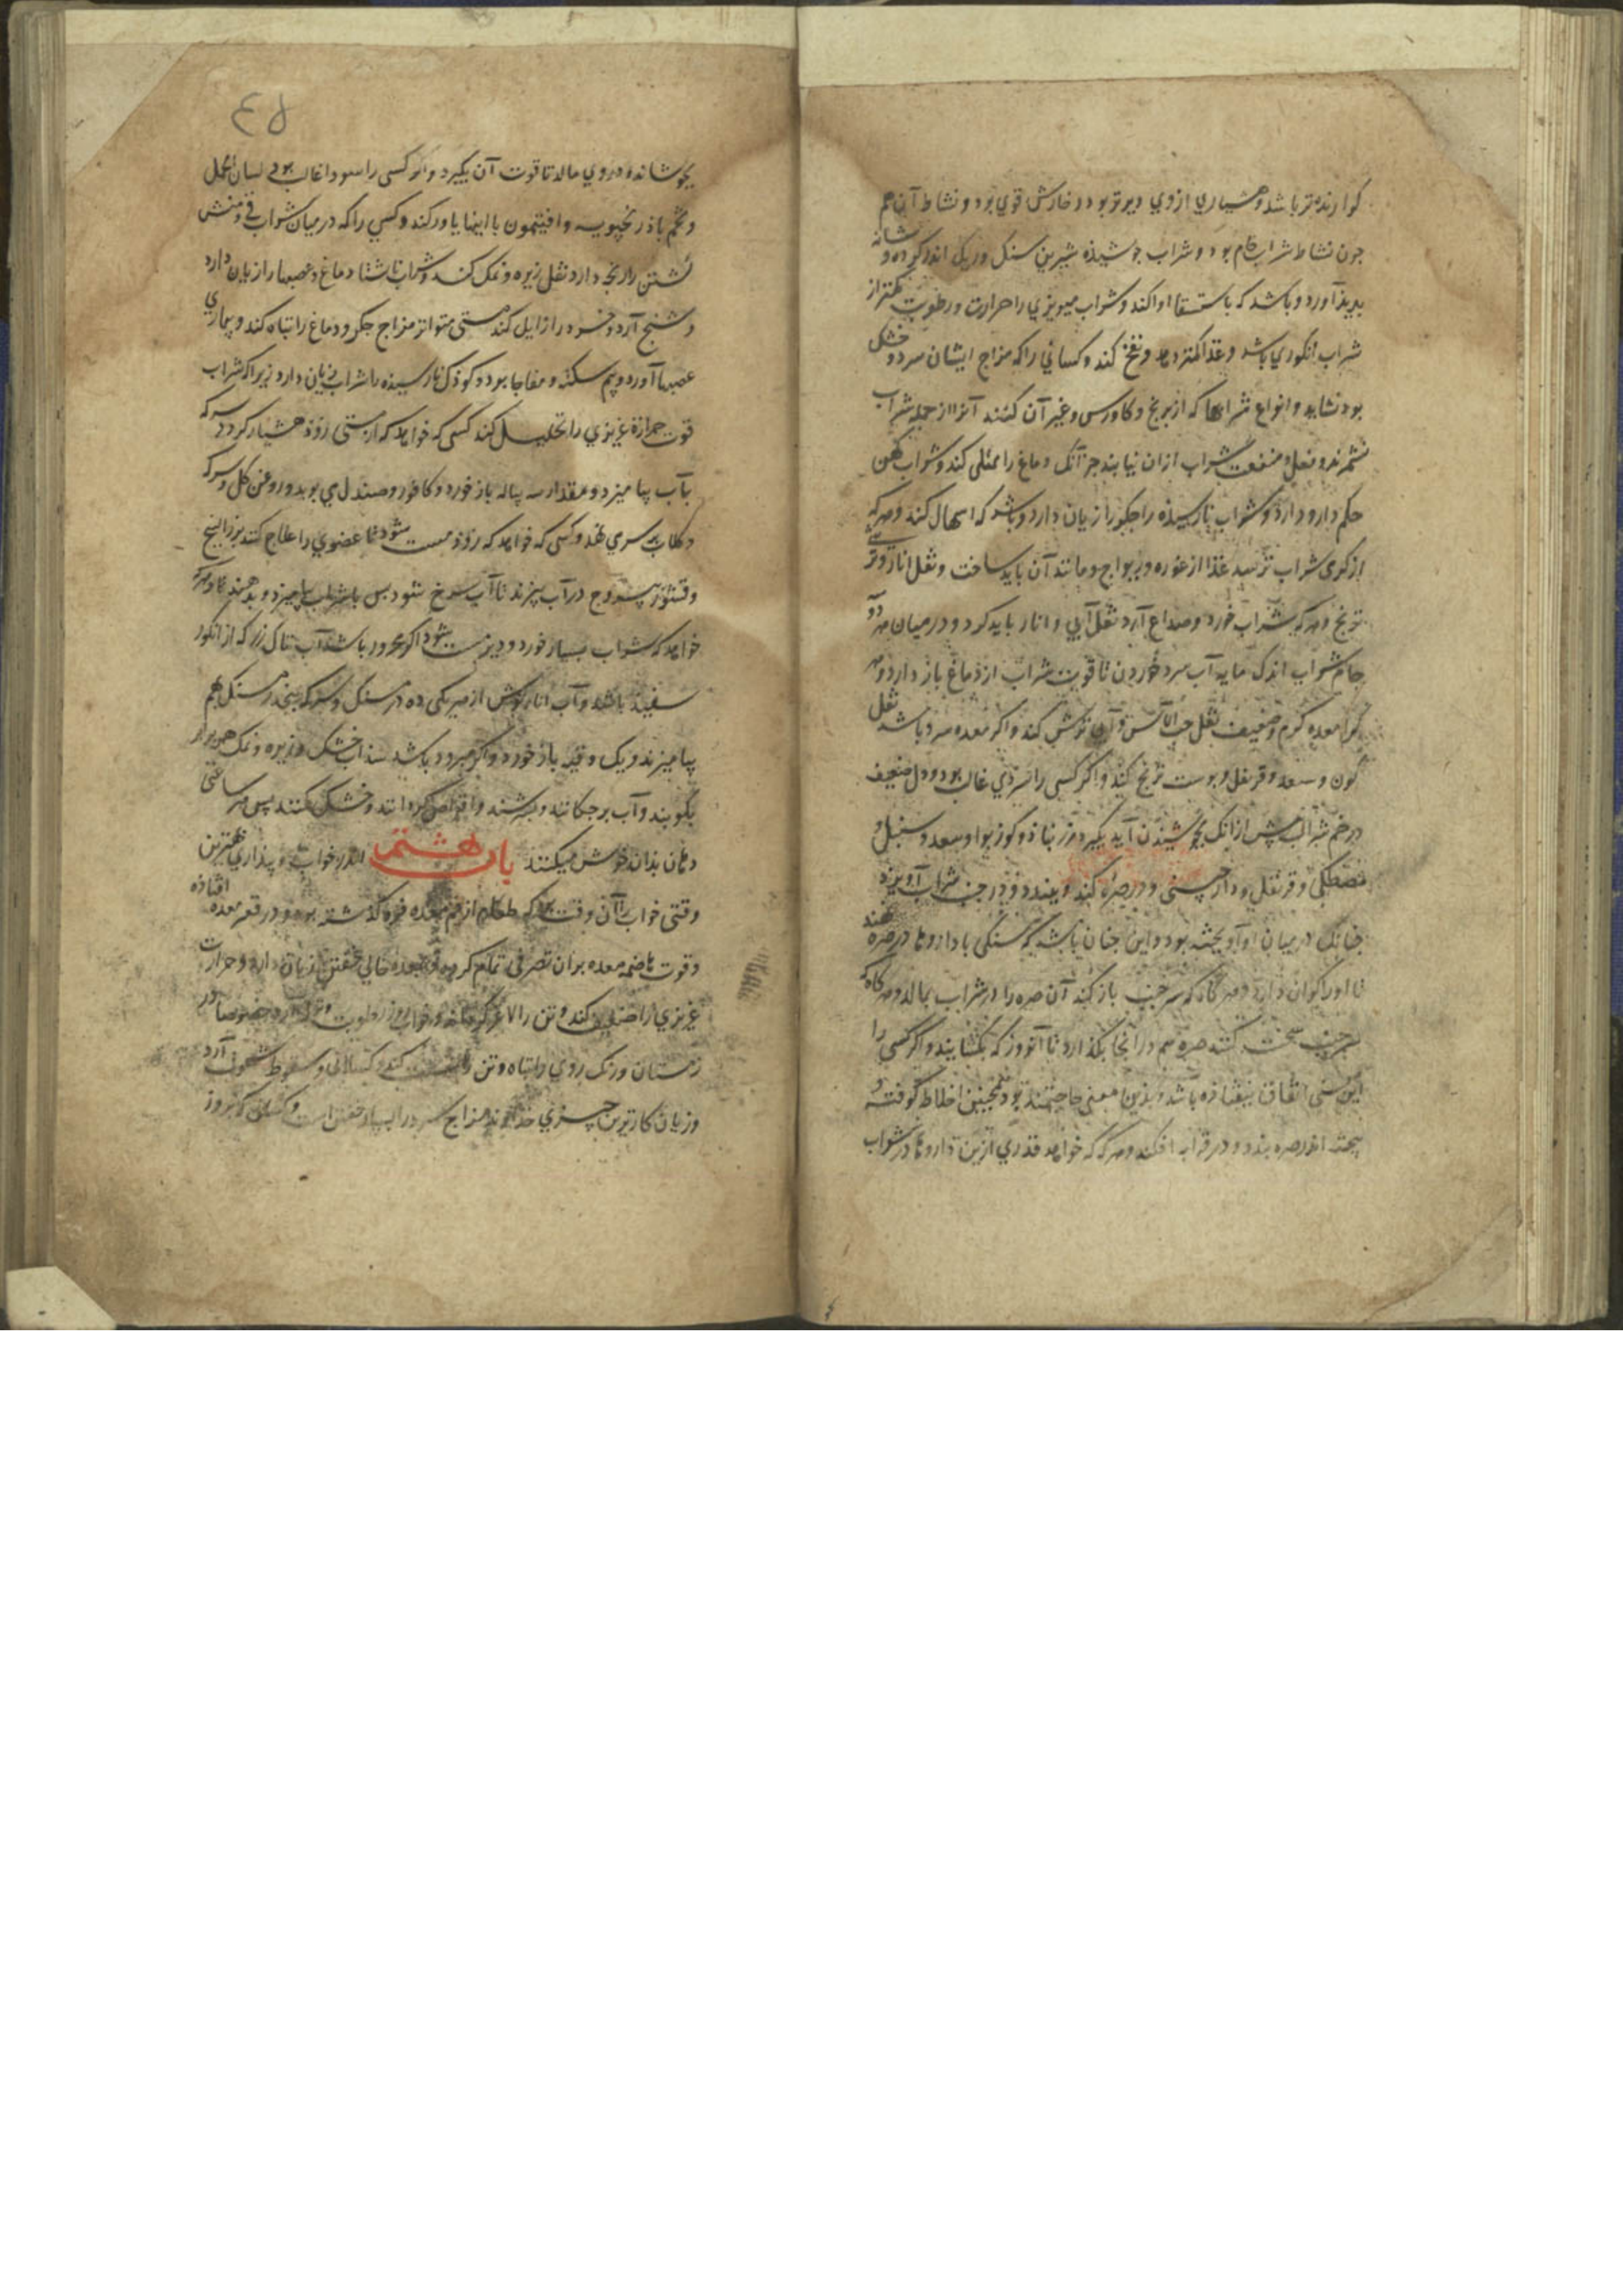 کوارنده‌تر باشد و هشیاری از وی دیرتر بود و خمارش قوی بود و نشاط آن هم
جون نشاط شراب خام بود و شراب جوشیذه شیرین سنک و ریک اندر کرده و مثانه
بدیذ آورد و باشد که باستسقا ادا کند و شراب میویزی را حرارت و رطوبت کمتر از
شراب انکوری باشد و غذا کمتر دهد و نفخ کند و کسانی را که مزاج ایشان سرد و خشک
بود نشاید و انواع شرابها که از برنج و کاورس و غیر آن کنند آنرا از جمله شراب
نشمرند و فعل و منفعت شراب ازان نیابند جز آنک دماغ را ممتلی کند و شراب کهن
حکم دارو دارد و شراب نارسیذه را جکر را زیان دارد و باشد که اسهال کند و هرکه
از کرمی شراب ترسد غذا از غوره و ریواج و مانند آن باید ساخت و نقل انار و ترشی
ترنج و هرکه شراب خورد و صداع آرد نقل آبی و انار باید کرد و در میان هر دو
جام شراب اندک مایه آب سرد خوردن تا قوت شراب از دماغ باز دارد و هر
کرا معده کرم و ضعیف نقل حب الآس و آبی ترش کند و اکر معده سرد باشد نقل
کون و سعد و قرنفل و بوست ترنج کند و اکر کسی را سردی غالب بود و دل ضعیف
در خم شراب پیش از انک بجوشیدن آید بکیرد زرنباد و کوزبوا و سعد و سنبل و
مصطکی و قرنفل و دارچینی و در صره کند و ببندد و در خنب شراب آویزد
جنانک در میان او آویخته بود و این جنان باشد که سنکی با داروها در صره نهند
تا او را کران دارد و هرکاه که سر خنب باز کند آن صره را در شراب بمالد و هرکاه که
سر خنب سخت کنند صره هم در آنجا بکذارد تا آنروز که بکشایند و اکر کسی را
این سنی اتفاق نیفتاذه باشد و بذین معنی حاجتمند بود همجنین اخلاط کوفته و
بیخته اندر صره بندد و در قرابه افکند و هرکه که خواهد قدری ازین داروها در شراب
۴۵
بجوشاند و در وی مالد تا قوت آن بکیرد و اکر کسی را سودا غالب بود لسان الحمل
و تخم باذرنجبویه و افتیمون با اینها یاور کند و کسی را که در میان شراب قی و منش
کشتن رنجه دارد نقل زیره و نمک کند و شراب ناشتا دماغ و عصبها را زیان دارد
و تشنج آرد و خرد را زایل کند و مستی متواتر مزاج جکر و دماغ را تباه کند و بیماری
عصبها آورد و بیم سکته و مفاجا بود و کوذک نارسیذه را شراب زیان دارد زیرا که شراب
قوت حرارة غریزی را تحلیل کند کسی که خواهد که از مستی زوذ هشیار کردد سرکه
بآب بیامیزد و مقدار سه پیاله باز خورد و کافور و صندل می بوید و روغن کل و سرکه
و کلاب بر سر می نهد و کسی که خواهد که زوذ مست شود تا عضوی را علاج کنند بزر البنج
و قشور یبروج در آب بپزند تا آب سرخ شود بس با شراب بیامیزد و بدهند و هرکه
خواهد که شراب بسیار خورد و دیر مست شود اکر محرور باشد آب تاک رز که از انکور
سفید باشد و آب انار ترش از هر یکی ده درمسنک و سرکه پنج درمسنک بهم
بیامیزند و یک وقیه باز خورد و اکر مبرود باشد سذاب خشک و زیره و نمک هر برابر
بکوبند و آب برجکانند و بسرشند و اقراص کردانند و خشک کنند پس هر ساعتی
دهان بذان خوش میکنند باب هشتم اندر خواب و بیذاری بهترین
وقتی خواب را آن وقت بود که طعام از فم معده فرو کذشته بود و در قعر معده افتاذه
و قوت هاضمه معده بران تصرفی تمام کرده و بر معده خالی خفتن زیان دارد و حرارت
غریزی را ضعیف کند و تن را لاغر کرداند و خواب روز رطوبت و نزله آرد خصوصا در
زمستان و رنک روی را تباه و تن را سست کند و کسلانی و سقوط شهوت آرد
و زیان کارترین جیزی خداوند مزاج سرد را بسیار خفتن است و کسانی که بروز